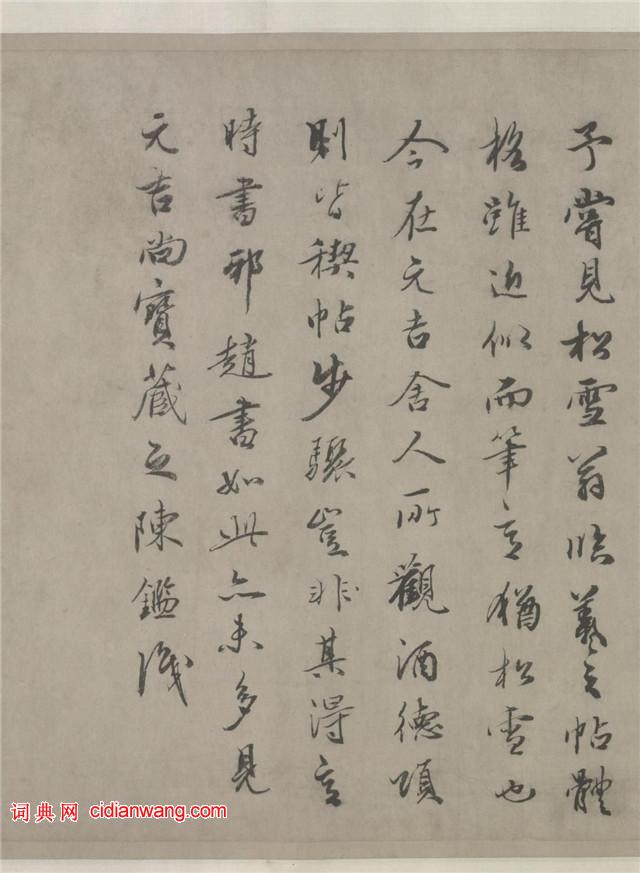 予嘗見松雪翁臨羲之帖體
格雖近似而筆意猶松雪也
今在元吉舍人所觀酒德頌
則皆稧帖步驟豈非其得意
時書邪趙書如此亦未多見
元吉尚寶藏之陳鑑識
词典网 cidianwang.com